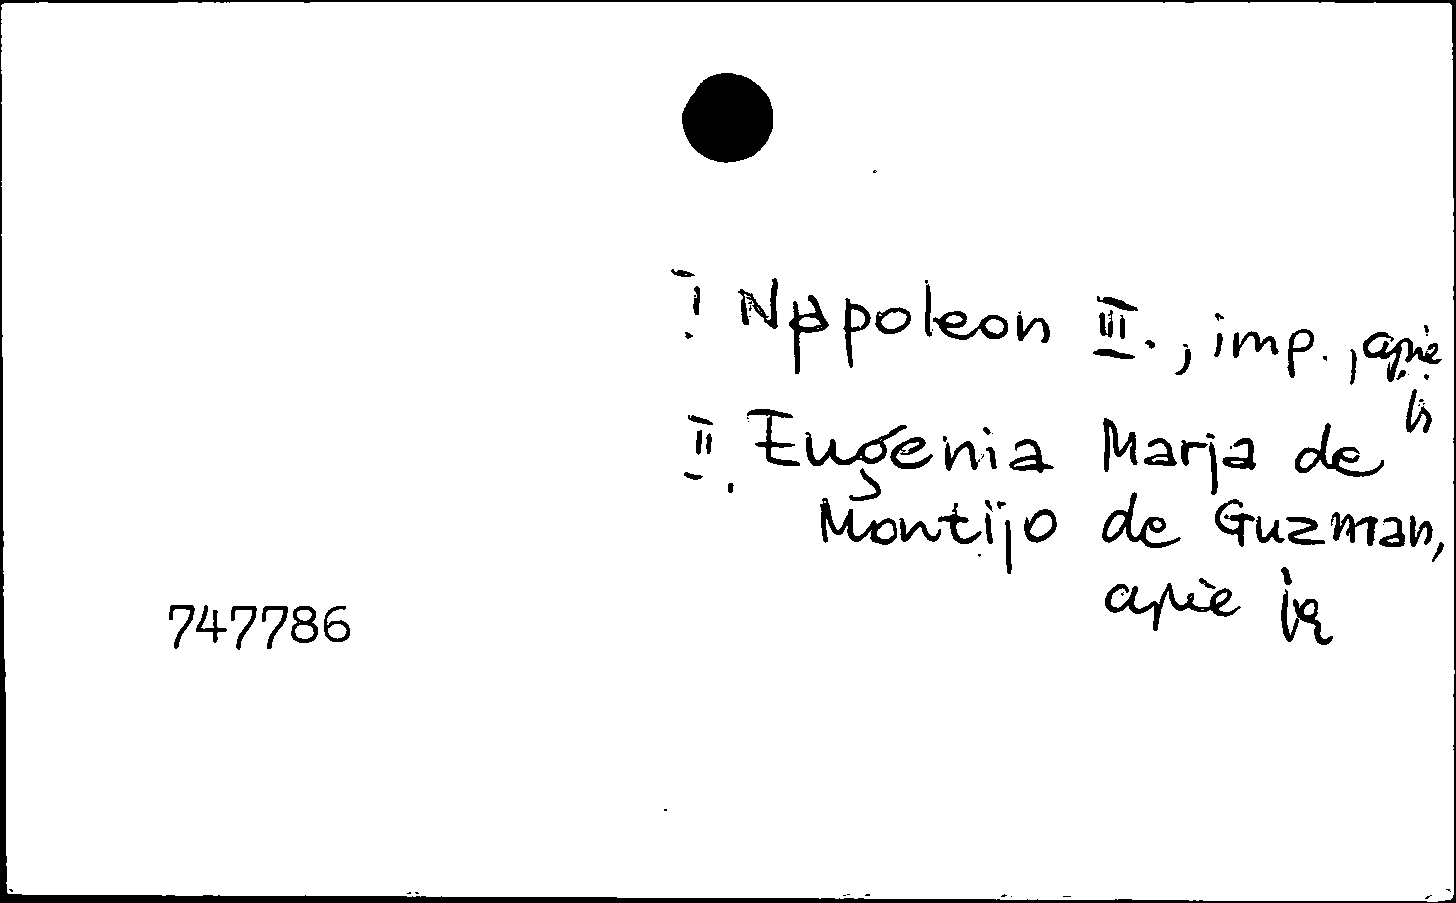 I Napoleon III., imp., apie
jį
II. Eugenia Marja de
Montijo de Guzman,
apie ją
747786